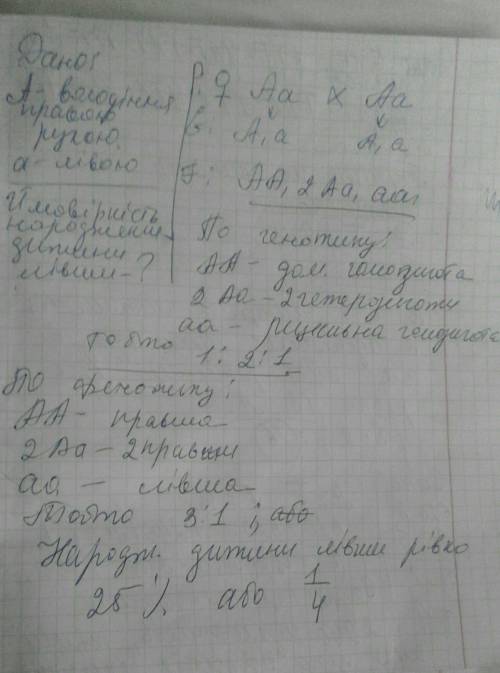 Дано:
А - володіння
правою
рукою
а - лівою
Ймовірність
народження
дитини
лівши - ?
P: ♀ Aa x Aa
G: A, a A, a
F: AA, 2Aa, aa.
По генотипу:
AA - дом. гомозигота
2 Aa - 2 гетерозиготи
aa - рецесивна гомозигота
тобто 1:2:1.
По фенотипу:
AA - правша
2Aa - 2 правши
aa - лівша
Тобто 3:1; або
Народж. дитини лівши рівко
25 % або 1/4